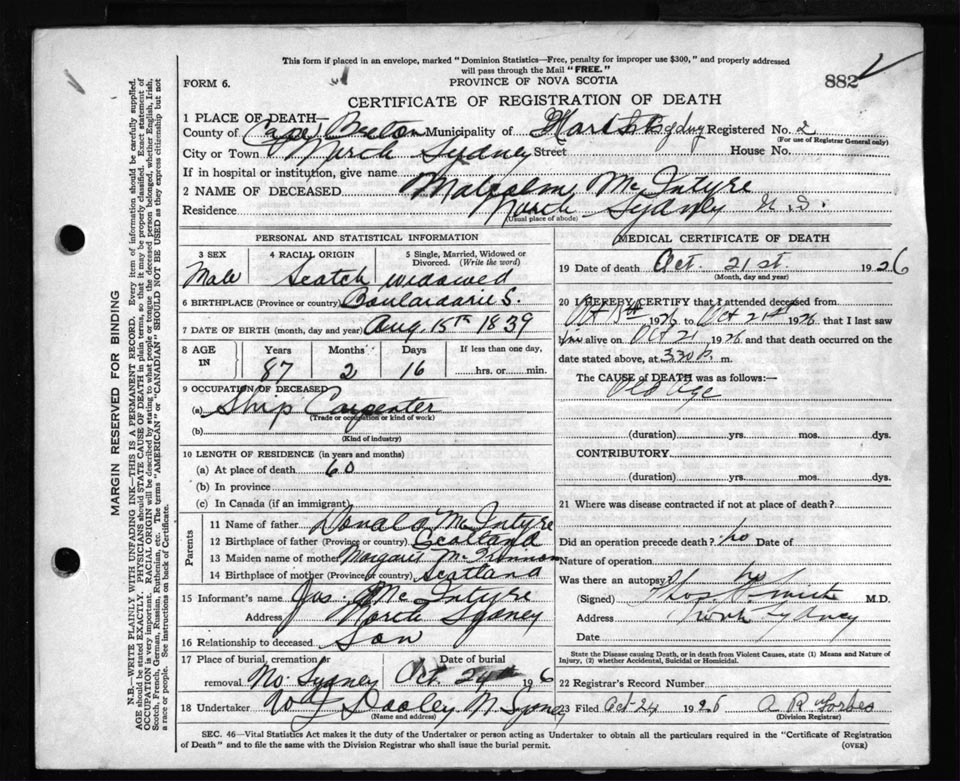 This form if placed in an envelope, marked "Dominion Statistics—Free, penalty for improper use $300," and properly addressed
will pass through the Mail "FREE."
FORM 6.
PROVINCE OF NOVA SCOTIA
882
CERTIFICATE OF REGISTRATION OF DEATH
1 PLACE OF DEATH—
County of Cape Breton Municipality of Registered No. 2
(For use of Registrar General only)
City or Town North Sydney Street House No.
If in hospital or institution, give name
2 NAME OF DECEASED Malcolm McIntyre
Residence North Sydney N.S.
(Usual place of abode)
PERSONAL AND STATISTICAL INFORMATION
3 SEX Male
4 RACIAL ORIGIN Scotch
5 Single, Married, Widowed or Divorced. (Write the word) widowed
6 BIRTHPLACE (Province or country) Boulardarie S.
7 DATE OF BIRTH (month, day and year) Aug. 15th 1839
8 AGE IN Years 87 Months 2 Days 16 If less than one day, hrs. or min.
9 OCCUPATION OF DECEASED
(a) Ship Carpenter
(Trade or occupation or kind of work)
(b)
(Kind of industry)
10 LENGTH OF RESIDENCE (in years and months)
(a) At place of death 60
(b) In province
(c) In Canada (if an immigrant)
Parents
11 Name of father Donald McIntyre
12 Birthplace of father (Province or country) Scotland
13 Maiden name of mother Margaret McKinnon
14 Birthplace of mother (Province or country) Scotland
15 Informant's name Jas. McIntyre
Address North Sydney
16 Relationship to deceased Son
17 Place of burial, cremation or removal No. Sydney
Date of burial Oct. 24th 1926
18 Undertaker Dooley N. Sydney
(Name and address)
MEDICAL CERTIFICATE OF DEATH
19 Date of death Oct. 21st. 1926
(Month, day and year)
20 I HEREBY CERTIFY that I attended deceased from
Oct 15th 1926 to Oct 21st 1926 that I last saw
him alive on Oct 21 1926 and that death occurred on the
date stated above, at 3.30 P. m.
The CAUSE of DEATH was as follows:—
Old Age
(duration) yrs. mos. dys.
CONTRIBUTORY
(duration) yrs. mos. dys.
21 Where was disease contracted if not at place of death?
Did an operation precede death? no Date of
Nature of operation
Was there an autopsy? no
(Signed) Thos. Smith M.D.
Address North Sydney
Date
State the Disease causing Death, or in death from Violent Causes, state (1) Means and Nature of
Injury, (2) whether Accidental, Suicidal or Homicidal.
22 Registrar's Record Number
23 Filed Oct-24 1926 A R Forbes
(Division Registrar)
SEC. 46—Vital Statistics Act makes it the duty of the Undertaker or person acting as Undertaker to obtain all the particulars required in the "Certificate of Registration
of Death" and to file the same with the Division Registrar who shall issue the burial permit.
(OVER)
MARGIN RESERVED FOR BINDING
N.B.—WRITE PLAINLY WITH UNFADING INK—THIS IS A PERMANENT RECORD. Every item of information should be carefully supplied.
AGE should be stated EXACTLY. PHYSICIANS should STATE CAUSE OF DEATH in plain terms, so that it may be properly classified. Exact statement of
OCCUPATION is very important. RACIAL ORIGIN will be described by stating to what people or tongue the deceased person belonged, whether English, Irish,
Scotch, French, German, Russian, Ruthenian, etc. The terms "AMERICAN" or "CANADIAN" SHOULD NOT BE USED as they express citizenship but not
a race or people. See instructions on back of Certificate.